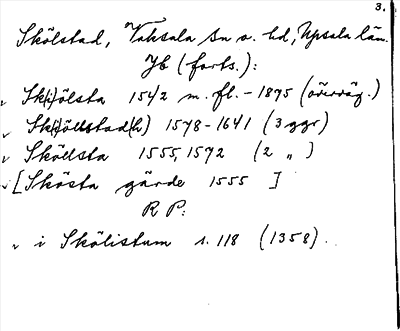 3.
Skölstad, Vaksala sn o. hd, Upsala län.
Jb (forts.):
v Sk(i)ölsta 1542 m. fl. - 1895 (överväg.)
v Sk(i)öllstad(h) 1578-1641 (3 ggr)
v Sköllsta 1555, 1592 (2 „ )
v [Skösta gärde 1555 ]
RP:
v i Skölistum s. 118 (1358).